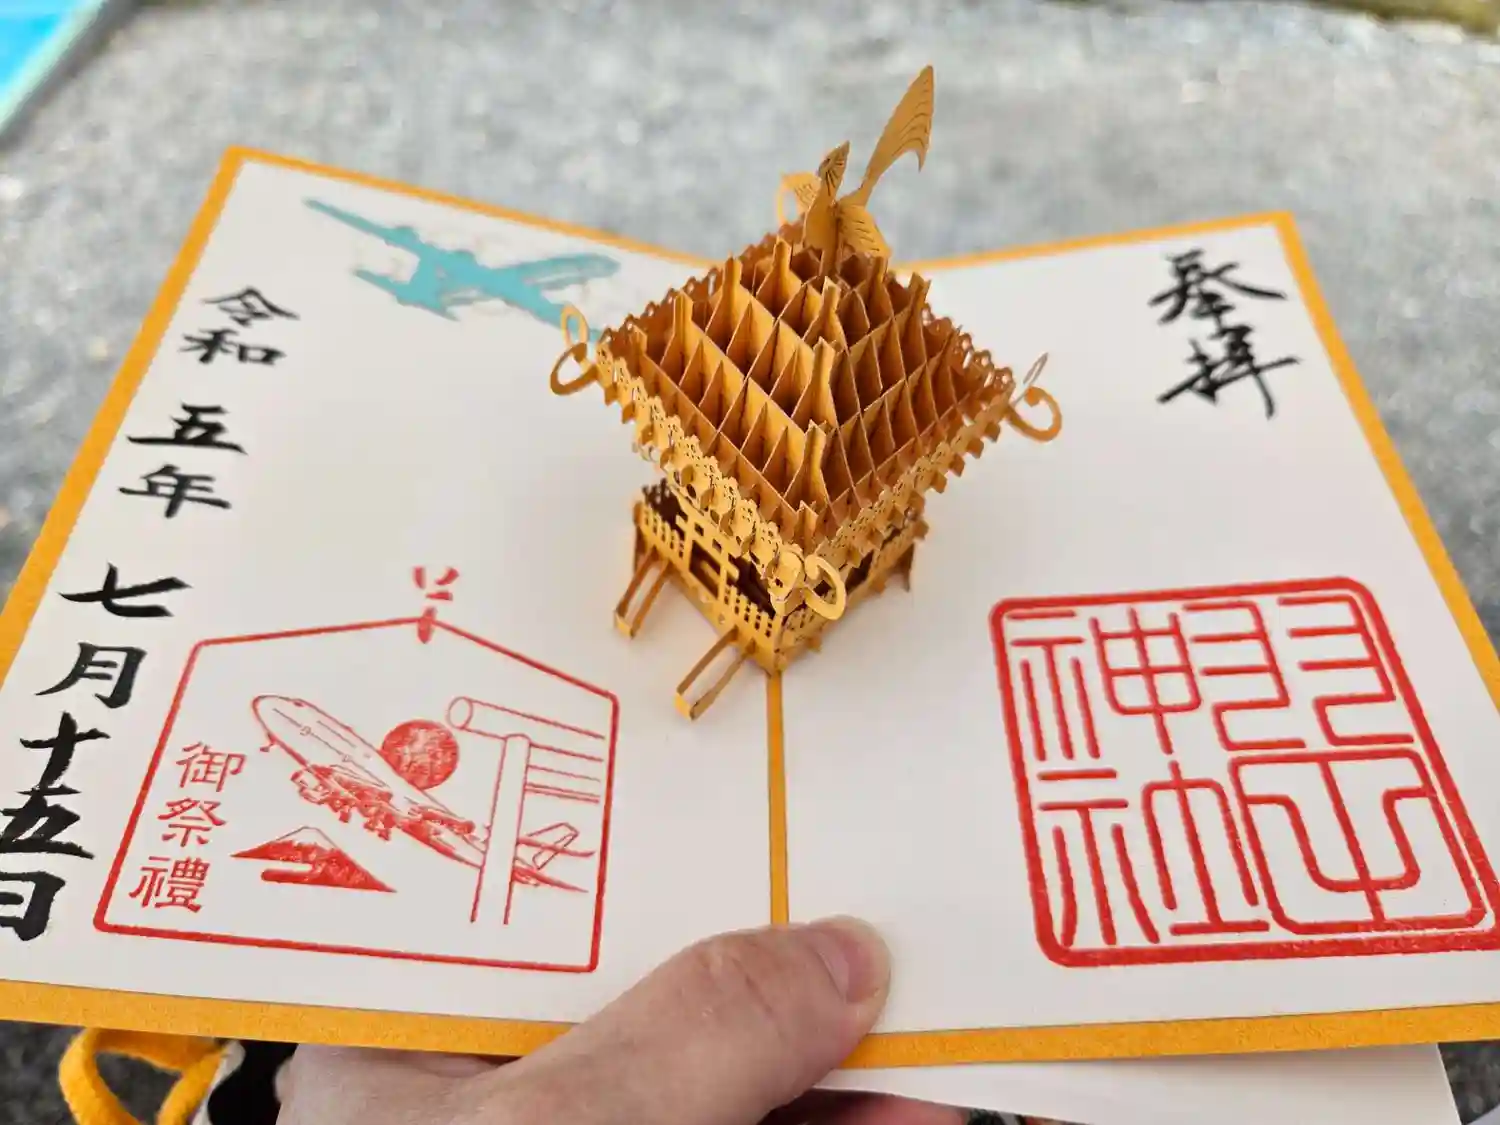 奉拝
羽田神社
御祭禮
令和五年七月十五日